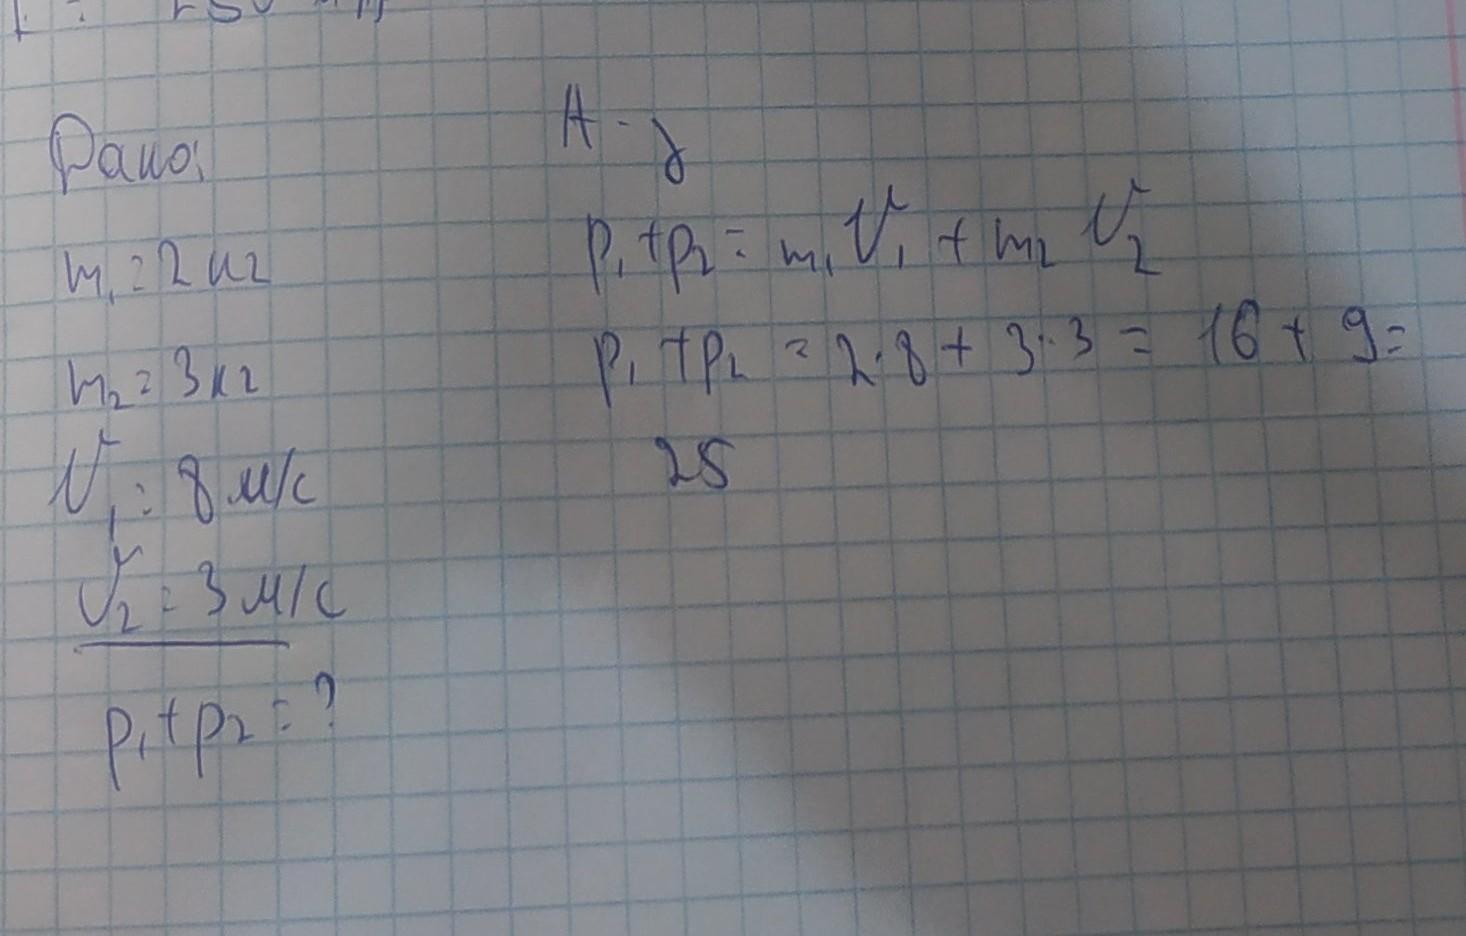 Дано:
m₁ = 2 кг
m₂ = 3 кг
V₁ = 8 м/с
V₂ = 3 м/с
p₁ + p₂ = ?
А - з
p₁ + p₂ = m₁ V₁ + m₂ V₂
p₁ + p₂ = 2·8 + 3·3 = 16 + 9 =
25